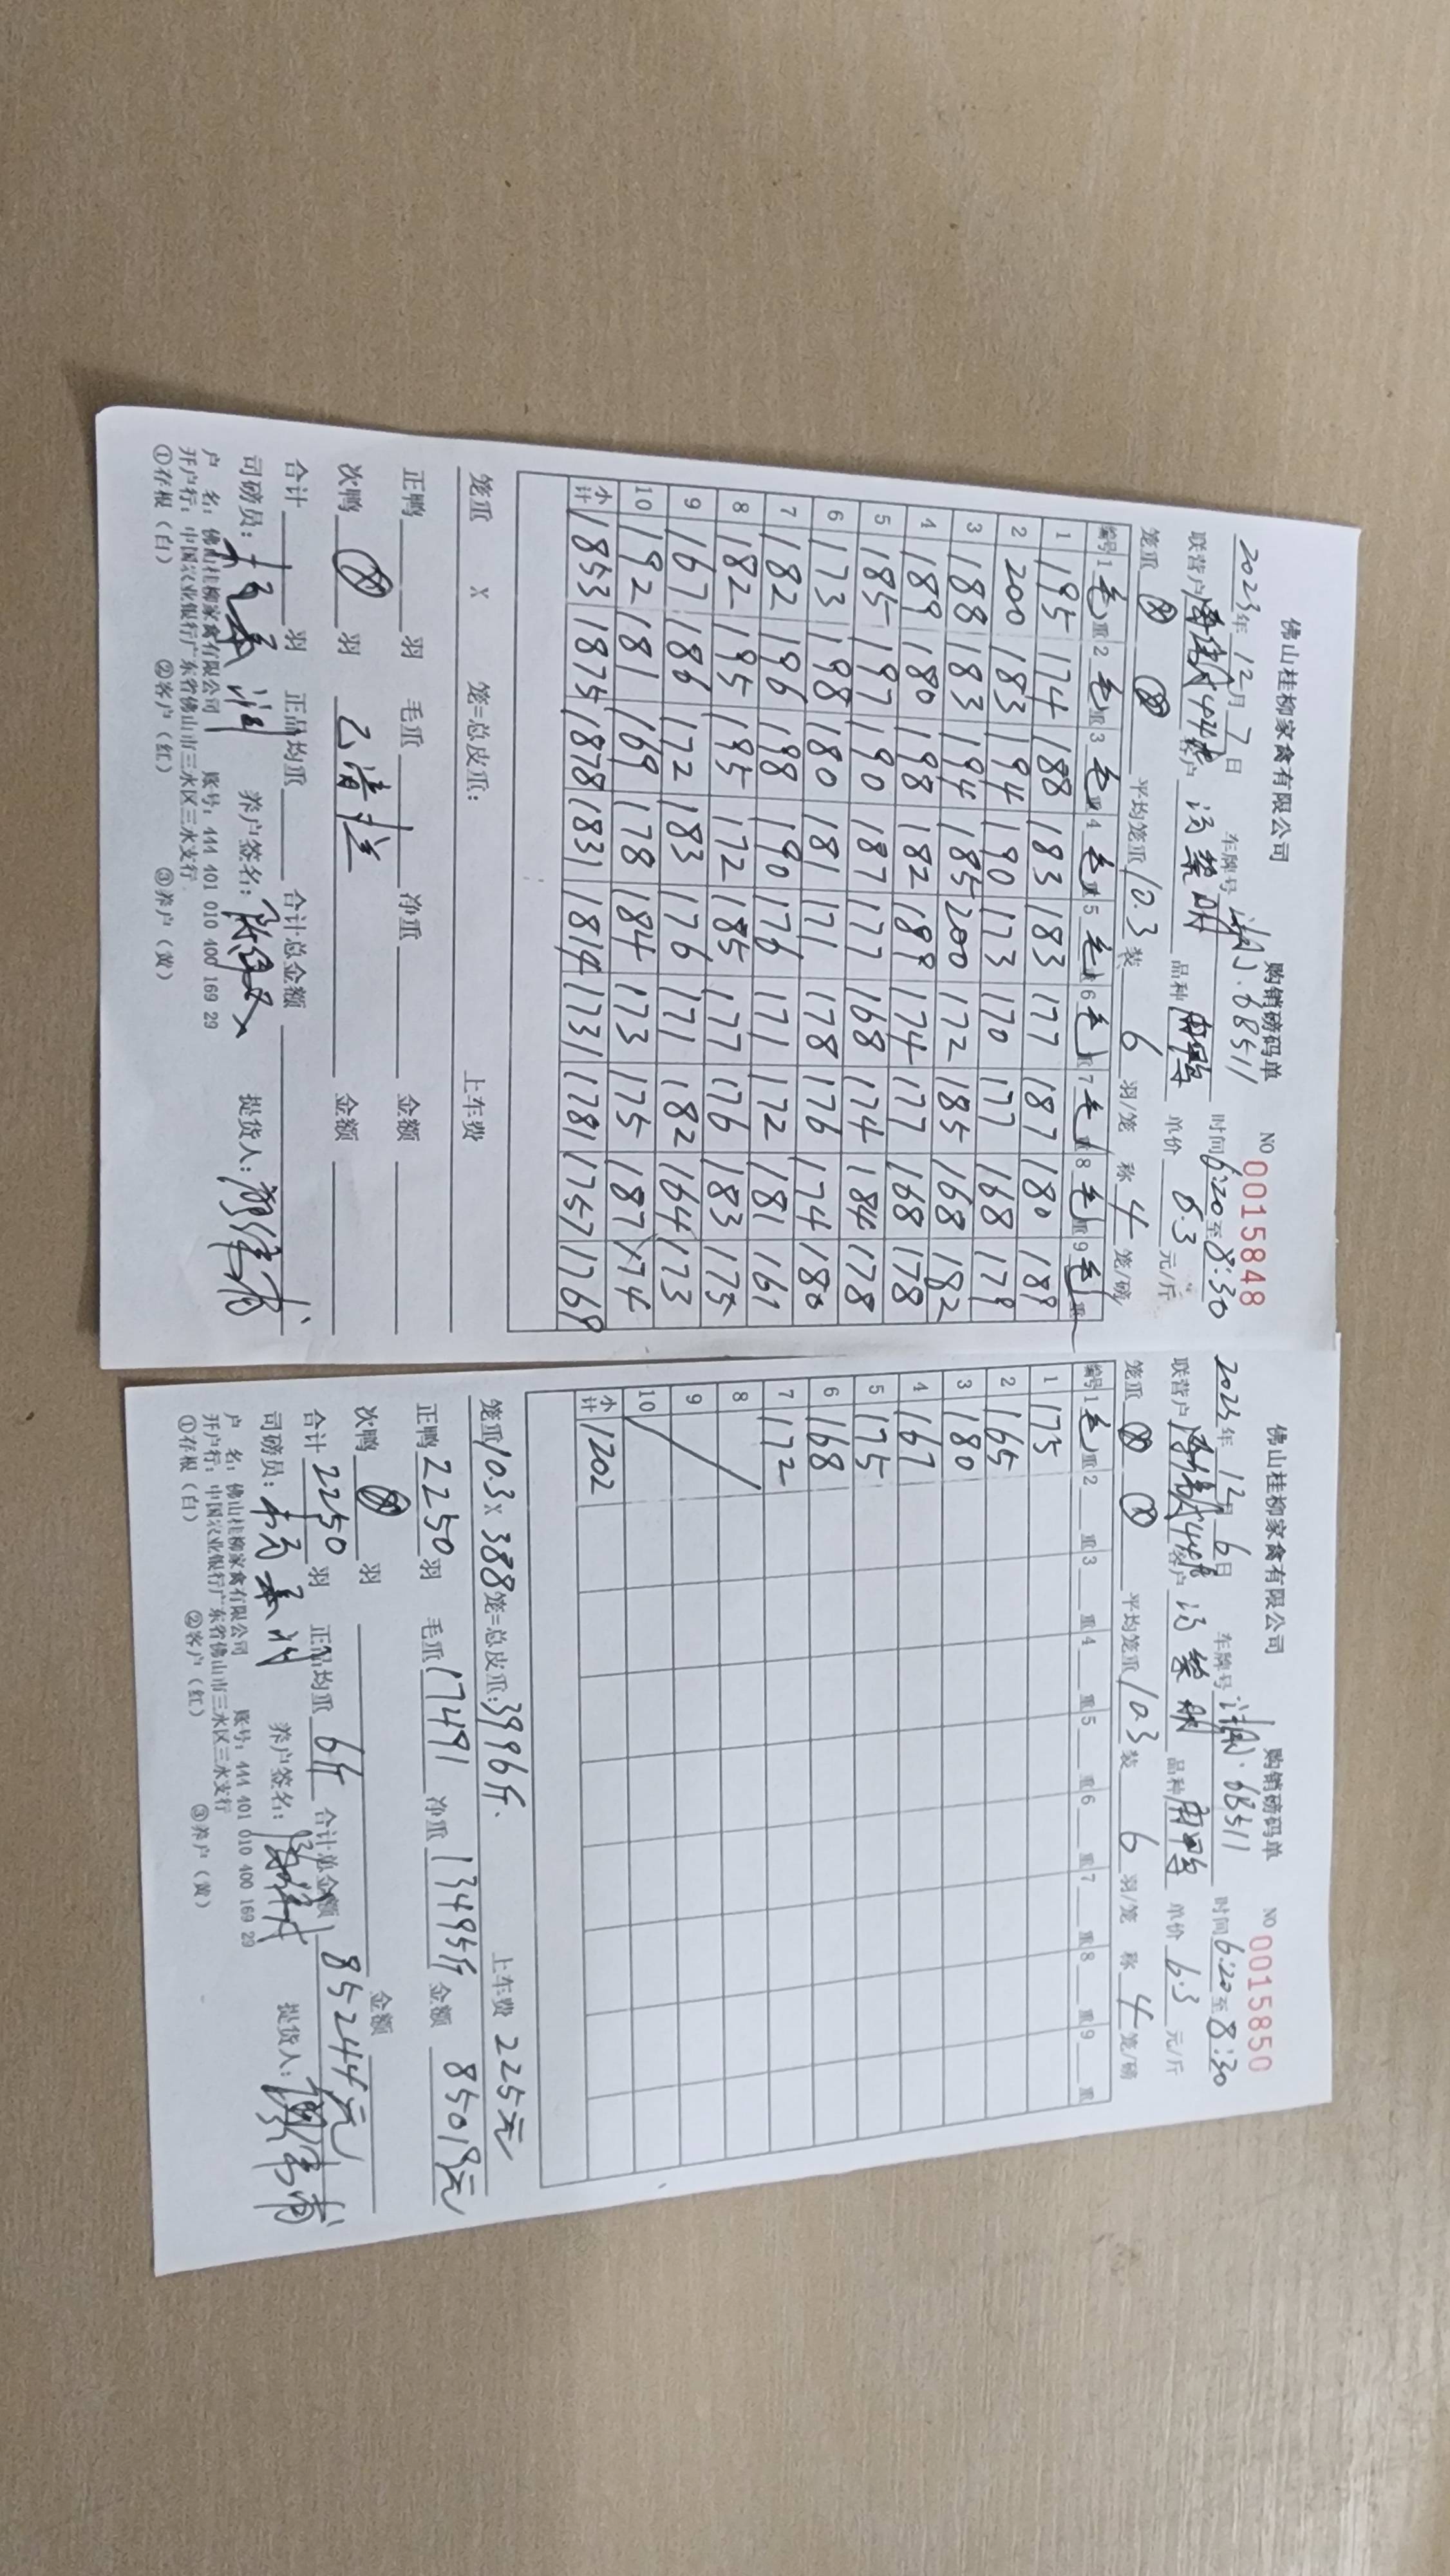 佛山桂柳家禽有限公司 购销磅码单 NO 0015848
2023年12月7日 车牌号 湘J·68511 时间6:20至8:30
联营户 客户 品种 单价 6.3 元/斤
笼重 ⊗ ⊗ 平均笼重10.3 装 6 羽/笼 称 4 笼/磅
编号 1毛重 2毛重 3毛重 4毛重 5毛重 6毛重 7毛重 8毛重 9毛重
1 195 174 188 183 183 177 187 180 189
2 200 183 194 190 173 170 177 168 179
3 188 183 194 185 200 172 185 168 182
4 189 180 198 182 189 174 177 168 178
5 185 197 190 187 177 168 174 184 178
6 173 198 180 181 171 178 176 174 180
7 182 196 198 190 176 171 172 181 161
8 182 195 195 172 185 177 176 183 175
9 167 186 172 183 176 171 182 164 173
10 192 181 169 178 184 173 175 187 174
小计 1853 1875 1878 1831 1814 1731 1781 1757 1769
笼重 x 笼=总皮重: 上车费
正鸭 羽 毛重 净重 金额
次鸭 ⊗ 羽 金额
合计 羽 正品均重 合计总金额
司磅员: 养户签名: 提货人:
户 名: 佛山桂柳家禽有限公司 账号: 444 401 010 400 169 29
开户行: 中国农业银行广东省佛山市三水区三水支行
①存根(白) ②客户(红) ③养户(黄)
佛山桂柳家禽有限公司 购销磅码单 NO 0015850
2023年12月6日 车牌号 湘J·68511 时间6:20至8:30
联营户 客户 品种 单价 6.3 元/斤
笼重 ⊗ ⊗ 平均笼重10.3 装 6 羽/笼 称 4 笼/磅
编号 1毛重 2 重 3 重 4 重 5 重 6 重 7 重 8 重 9 重
1 175
2 165
3 180
4 167
5 175
6 168
7 172
8
9
10
小计 1202
笼重10.3 x 388笼=总皮重:3996斤. 上车费 225元
正鸭2250羽 毛重17491 净重13495斤 金额 85019元
次鸭 ⊗ 羽 金额
合计2250羽 正品均重 6斤 合计总金额 85244元
司磅员: 养户签名: 提货人:
户 名: 佛山桂柳家禽有限公司 账号: 444 401 010 400 169 29
开户行: 中国农业银行广东省佛山市三水区三水支行
①存根(白) ②客户(红) ③养户(黄)